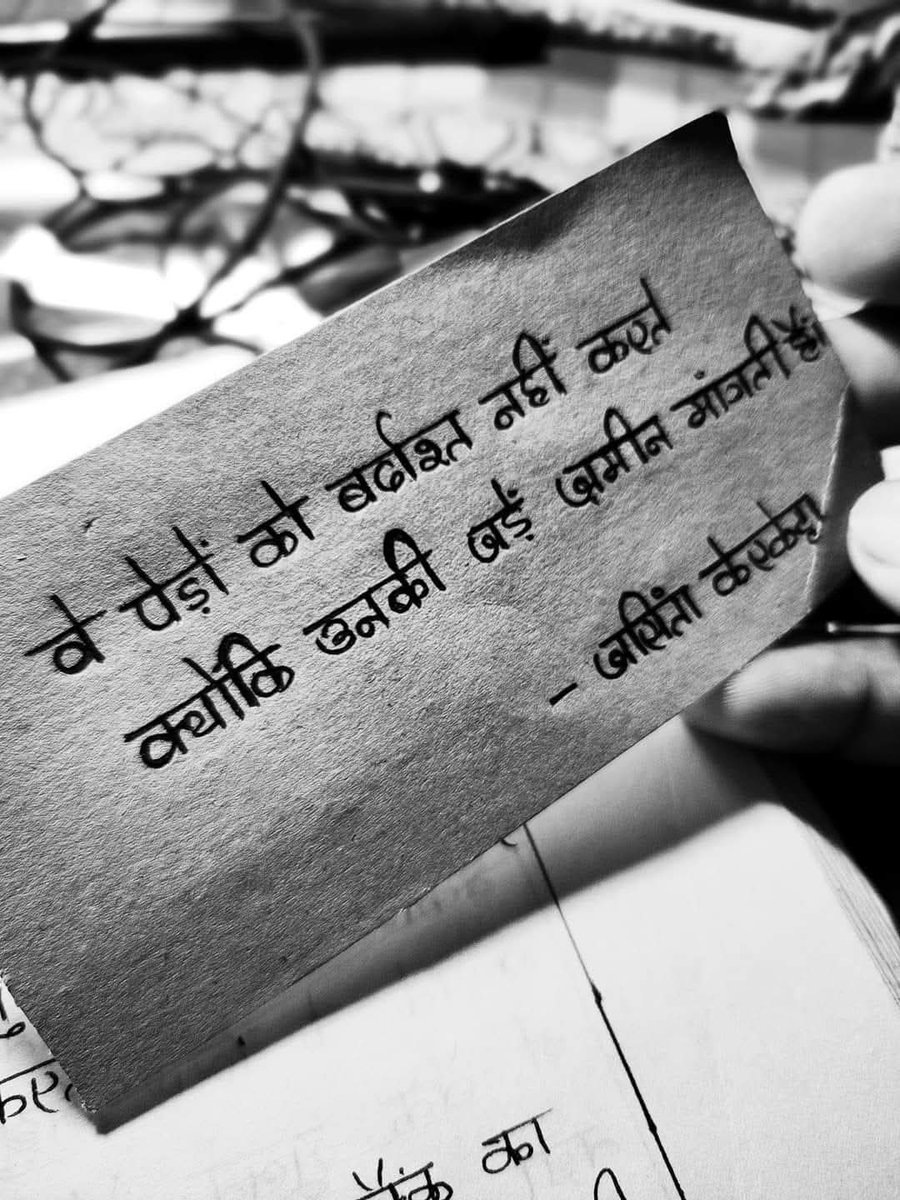 वे पेड़ों को बर्दाश्त नहीं करते
क्योंकि उनकी जड़ें ज़मीन मांगती हैं।
- जसिंता केरकेट्टा
का